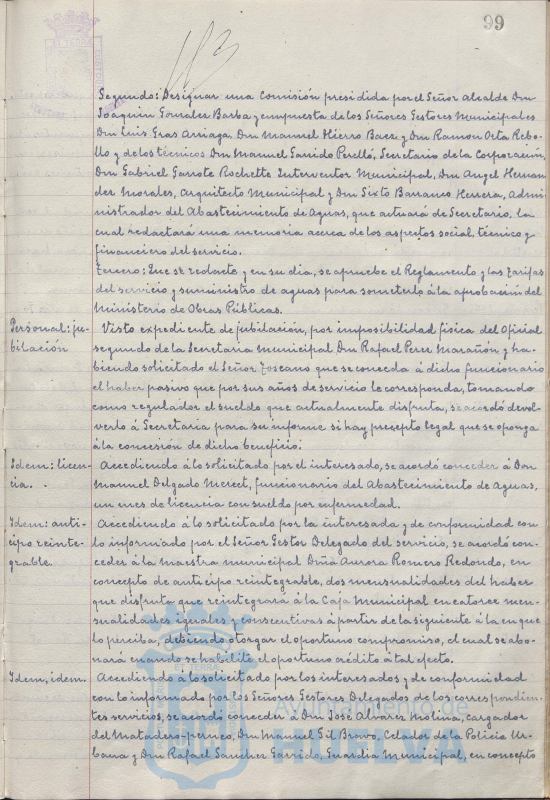 99
Segundo: Designar una Comisión presidida por el Señor Alcalde Don
Joaquín Gonzalez Barba y compuesta de los Señores Gestores Municipales
Don Luis Gras Arriaga, Don Manuel Hierro Baez y Don Ramon Orta Rebo-
llo y de los técnicos Don Manuel Garrido Perelló, Secretario de la Corporación,
Don Gabriel Garrote Rochette Interventor Municipal, Don Angel Hernan
dez Morales, Arquitecto Municipal y Don Sixto Barranco Herrera, Admi-
nistrador del Abastecimiento de Aguas, que actuará de Secretario, la
cual redactará una memoria acerca de los aspectos social, técnico y
financiero del servicio.
Tercero: Que se redacte y en su dia, se apruebe el Reglamento y las tarifas
del servicio y suministro de aguas para someterlo á la aprobación del
Ministerio de Obras Públicas.
Personal: ju-
bilación
Visto expediente de jubilación, por imposibilidad física del Oficial
segundo de la Secretaria Municipal Don Rafael Perez Marañón y ha-
biendo solicitado el Señor Toscano que se conceda á dicho funcionario
el haber pasivo que por sus años de servicio le corresponda, tomando
como regulador el sueldo que actualmente disfruta, se acordó devol-
verlo á Secretaria para su informe si hay precepto legal que se oponga
á la concesión de dicho beneficio.
Idem: licen-
cia.
Accediendo á lo solicitado por el interesado, se acordó conceder á Don
Manuel Delgado funcionario del Abastecimiento de Aguas,
un mes de licencia con sueldo por enfermedad.
Idem: anti-
cipo reinte-
grable.
Accediendo á lo solicitado por la interesada y de conformidad con
lo informado por el Señor Gestor Delegado del servicio, se acordó con-
ceder á la maestra municipal Doña Aurora Romero Redondo, en
concepto de anticipo reintegrable, dos mensualidades del haber
que disfruta que reintegrará á la Caja Municipal en catorce men-
sualidades iguales y consecutivas á partir de la siguiente á la en que
lo perciba, debiendo otorgar el oportuno compromiso, el cual se abo-
nará cuando se habilite el oportuno crédito á tal efecto.
Idem, idem.
Accediendo á lo solicitado por los interesados y de conformidad
con lo informado por los Señores Gestores Delegados de los correspondien-
tes servicios, se acordó conceder á Don José Alvarez Molina, cargador
del Matadero, Don Manuel Gil Bravo, Celador de la Policia Ur-
bana y Don Rafael Sanchez Garrido, Guardia Municipal, en concepto
Ayuntamiento de
HUELVA